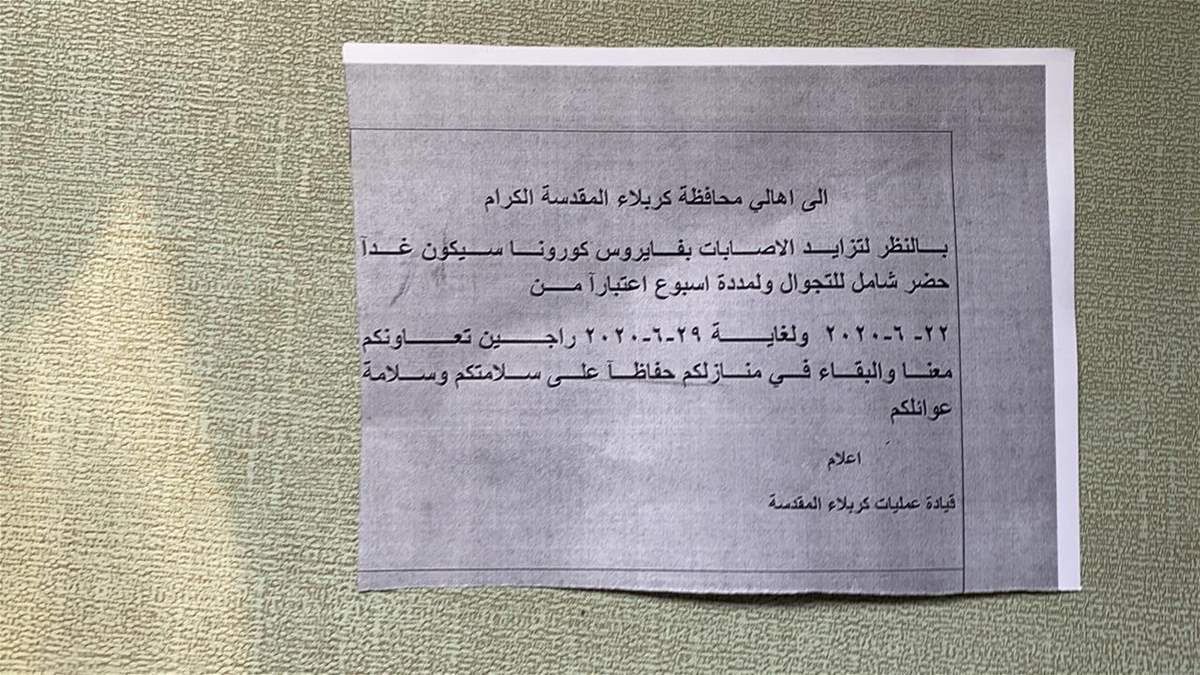 الى اهالي محافظة كربلاء المقدسة الكرام
بالنظر لتزايد الاصابات بفايروس كورونا سيكون غدآ
حضر شامل للتجوال ولمددة اسبوع اعتبارآ من
٢٢- ٦-٢٠٢٠ ولغاية ٢٩-٦-٢٠٢٠ راجين تعاونكم
معنا والبقاء في منازلكم حفاظآ على سلامتكم وسلامة
عوائلكم
اعلام
قيادة عمليات كربلاء المقدسة